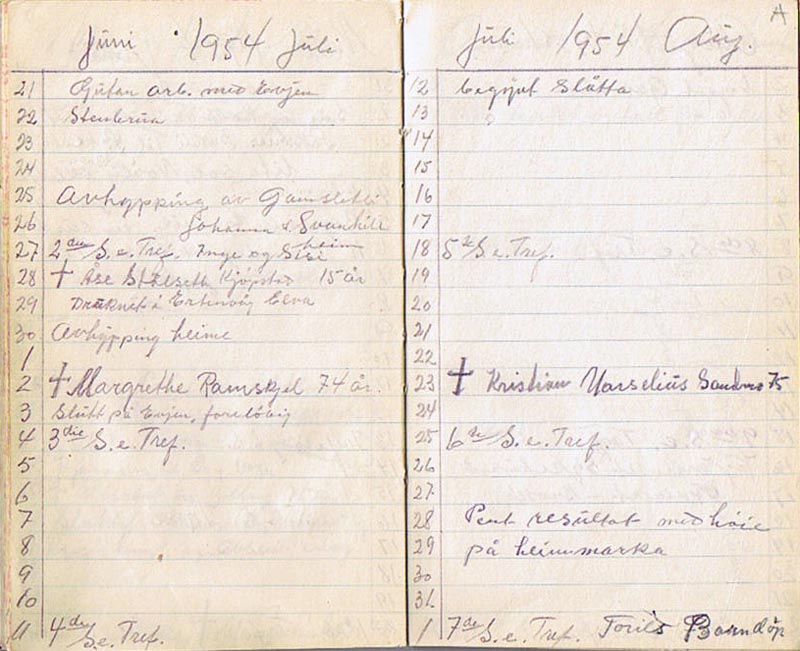 Juni 1954 Juli
21 Gutan arb. med Evjen
22 Stenbrua
23
24
25 Avhypping av
26 Johanna & Svanhill
27 2die S.e. Tref. Inge og heim
28 † Åse Kjøpstad 15 år
29 Druknet i Elva
30 Avhypping heime
1
2 † Margrethe Ramskjel 74 år.
3 Slutt på Evjen, foreløbig
4 3die S.e. Tref.
5
6
7
8
9
10
11 4de S.e. Tref.
Juli 1954 Aug.
12 begynt Slåtta
13
14
15
16
17
18 5te S.e. Tref.
19
20
21
22
23 † Kristian Sandmo 75
24
25 6te S.e. Tref.
26
27
28 Pent resultat med høie
29 på heimmarka
30
31
1 7de S.e. Tref. Torils Barndåp